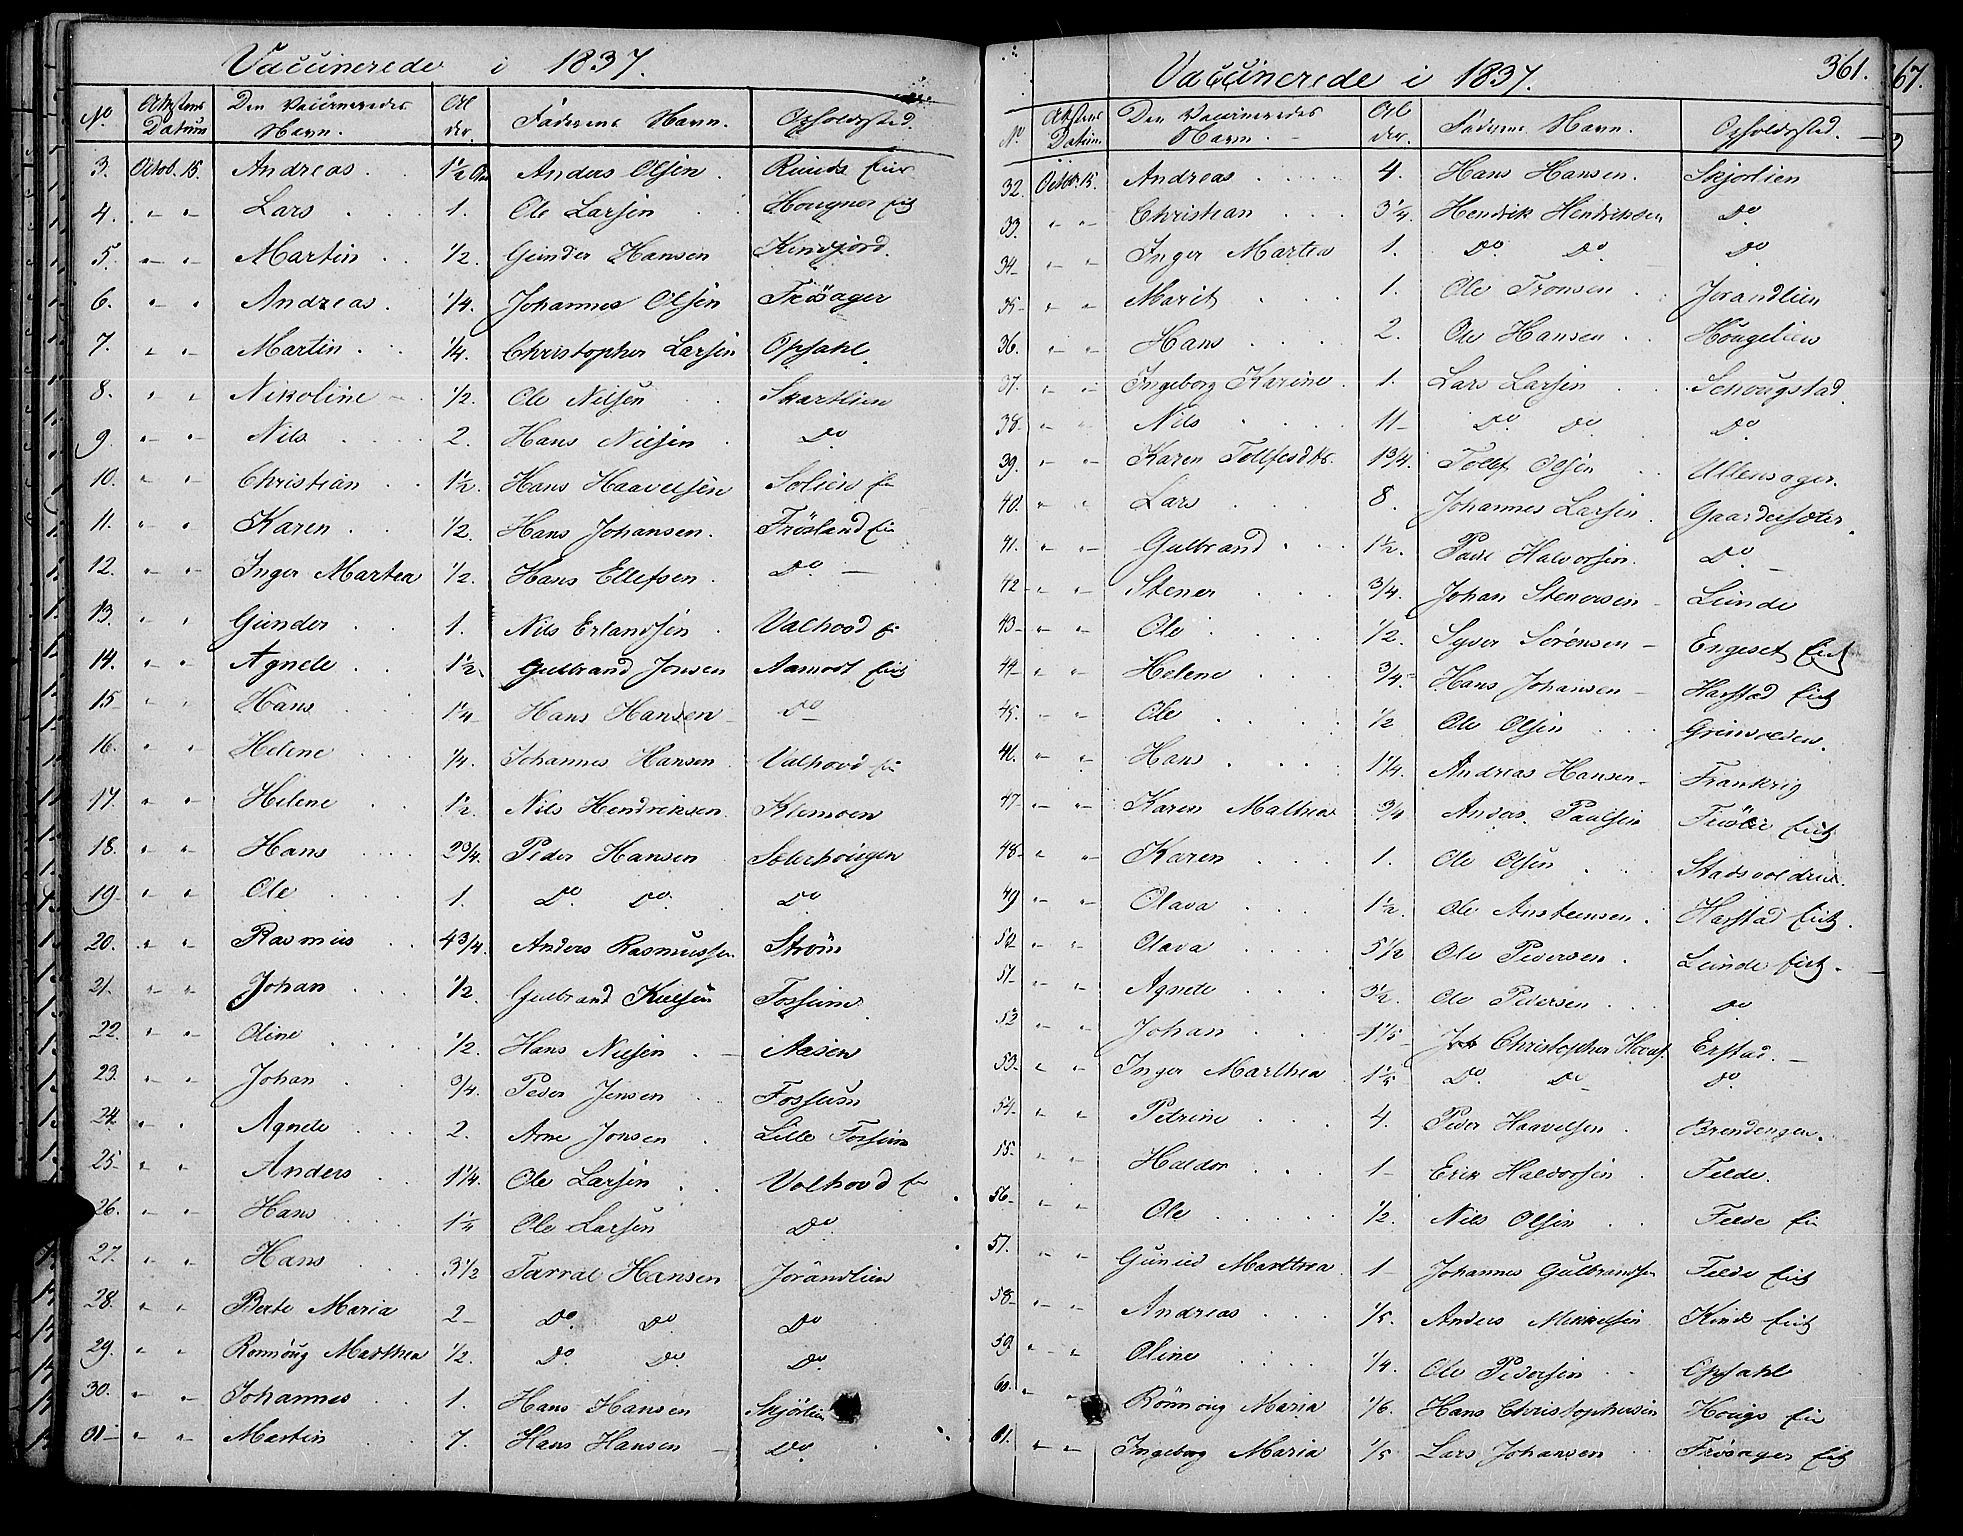 Vaccinerede i 1837.
No. Attestens Datum Den Vaccineredes Navn. Al der. Faderens Navn. Opholdssted.
3. Octob. 15. Andreas 1½ Anders Olsen Ruuds
4. " " Lars 1. Ole Larsen Hougner
5. " " Martin 1/2. Gunder Hansen
6. " " Andreas 1/4. Johannes Olsen Frösager
7. " " Martin 1/4. Christopher Larsen Opsahl
8. " " Nikoline 1/2. Ole Nilsen Skartlien
9. " " Nils 2. Hans Nilsen Do
10. " " Christian 1½. Hans Haavelsen Solien
11. " " Karen 1/2. Hans Johansen. Frösland
12. " " Inger Marthea 1/2. Hans Ellefsen Do
13. " " Gunder 1. Nils Erlandsen Valhovd
14. " " Agnete 1½. Gulbrand Jonsen Aamodt
15 " " Hans 1¼ Hans Hansen Do
16. " " Helene 1/4. Johannes Hansen Valhovd
17. " " Helene 1½. Nils Hendriksen Klemoen
18. " " Hans 2¾. Peder Hansen Solerhougen
19. " " Ole 1. Do Do. Do
20. " " Rasmus 4¾. Anders Rasmussen Ström
21. " " Johan 1/2. Gulbrand Fossum
22. " " Oline 1/2. Hans Nilsen Aasen
23. " " Johan 3/4. Peder Jensen Fossum
24. " " Agnete 2. Arne Jonsen Lille Fossum
25 " " Anders 1¼. Ole Larsen Valhovd
26. " " Hans 1¼ Ole Larsen Do
27. " " Hans 3½ Tarral Hansen Jorandlien
28. " " Berte Maria 2 Do Do Do
29. " " Rönnoug Marthea 1/2. Do Do. Do
30. " " Johannes 1. Hans Hansen Skjörlien
31 " " Martin 7. Hans Hansen Do
Vaccinerede i 1837. 361.
No. Attestens Datum. Den Vaccineredes Navn. Al der. Faderens Navn. Opholdssted.
32. Octob. 15. Andreas 4. Hans Hansen. Skjörlien
33. " " Christian 3¼. Hendrik Hendriksen Do
34 " " Inger Martea 1. Do Do Do
35 " " Marit 1. Ole Tronsen Jorandlien
36. " " Hans 2. Ole Hansen Hougelien
37. " " Ingeborg Karine 1. Lars Larsen Schougstad
38. " " Nils 11 Do Do Do
39. " " Karen Tollefsdtr. 1¾. Tollef Olsen Ullensager.
40. " " Lars 8. Johannes Larsen Gaardersæter
41. " " Gulbrand 1½. Paul Halvorsen. Do
42 " " Stener 3/4. Johan Stenersen Lunde
43 " " Ole 1/2. Syver Sörensen Engeset
44 " " Helene 3/4. Hans Johansen Harstad
45. " " Ole 1/2 Ole Olsen Grinvolden.
46. " " Hans 1¼. Andreas Hansen Frankrig
47 " " Karen Malthea 3/4 Anders Paulsen
48 " " Karen 1. Ole Olsen Stadsvoldene.
49 " " Olava 1½. Ole Anstensen. Harstad
50 " " Olava 5½ Ole Pedersen Lunde
51 " " Agnete 3½. Ole Pedersen Do
52 " " Johan Christopher Erstad.
53. " " Inger Marthea Do. Do Do
54 " " Petrine 4. Peder Haavelsen Brendengen.
55 " " Haldor 1 Erik Haldorsen Felde.
56 " " Ole 1/2. Nils Olsen Felde
57. " " Gunild Marthea 1 Johannes Gulbrandsen Felde
58 " " Andreas 1/5. Anders Mikkelsen
59. " " Oline 1/4. Ole Pedersen Opsahl
60 " " Rönnoug Maria 1/6. Hans Christophersen Hougs
61. " " Ingeborg Maria 1/5 Lars Johansen Frösager
67.